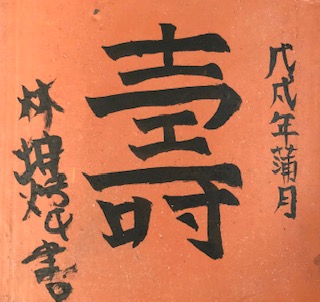 戊戌年蒲月
壽
林
書